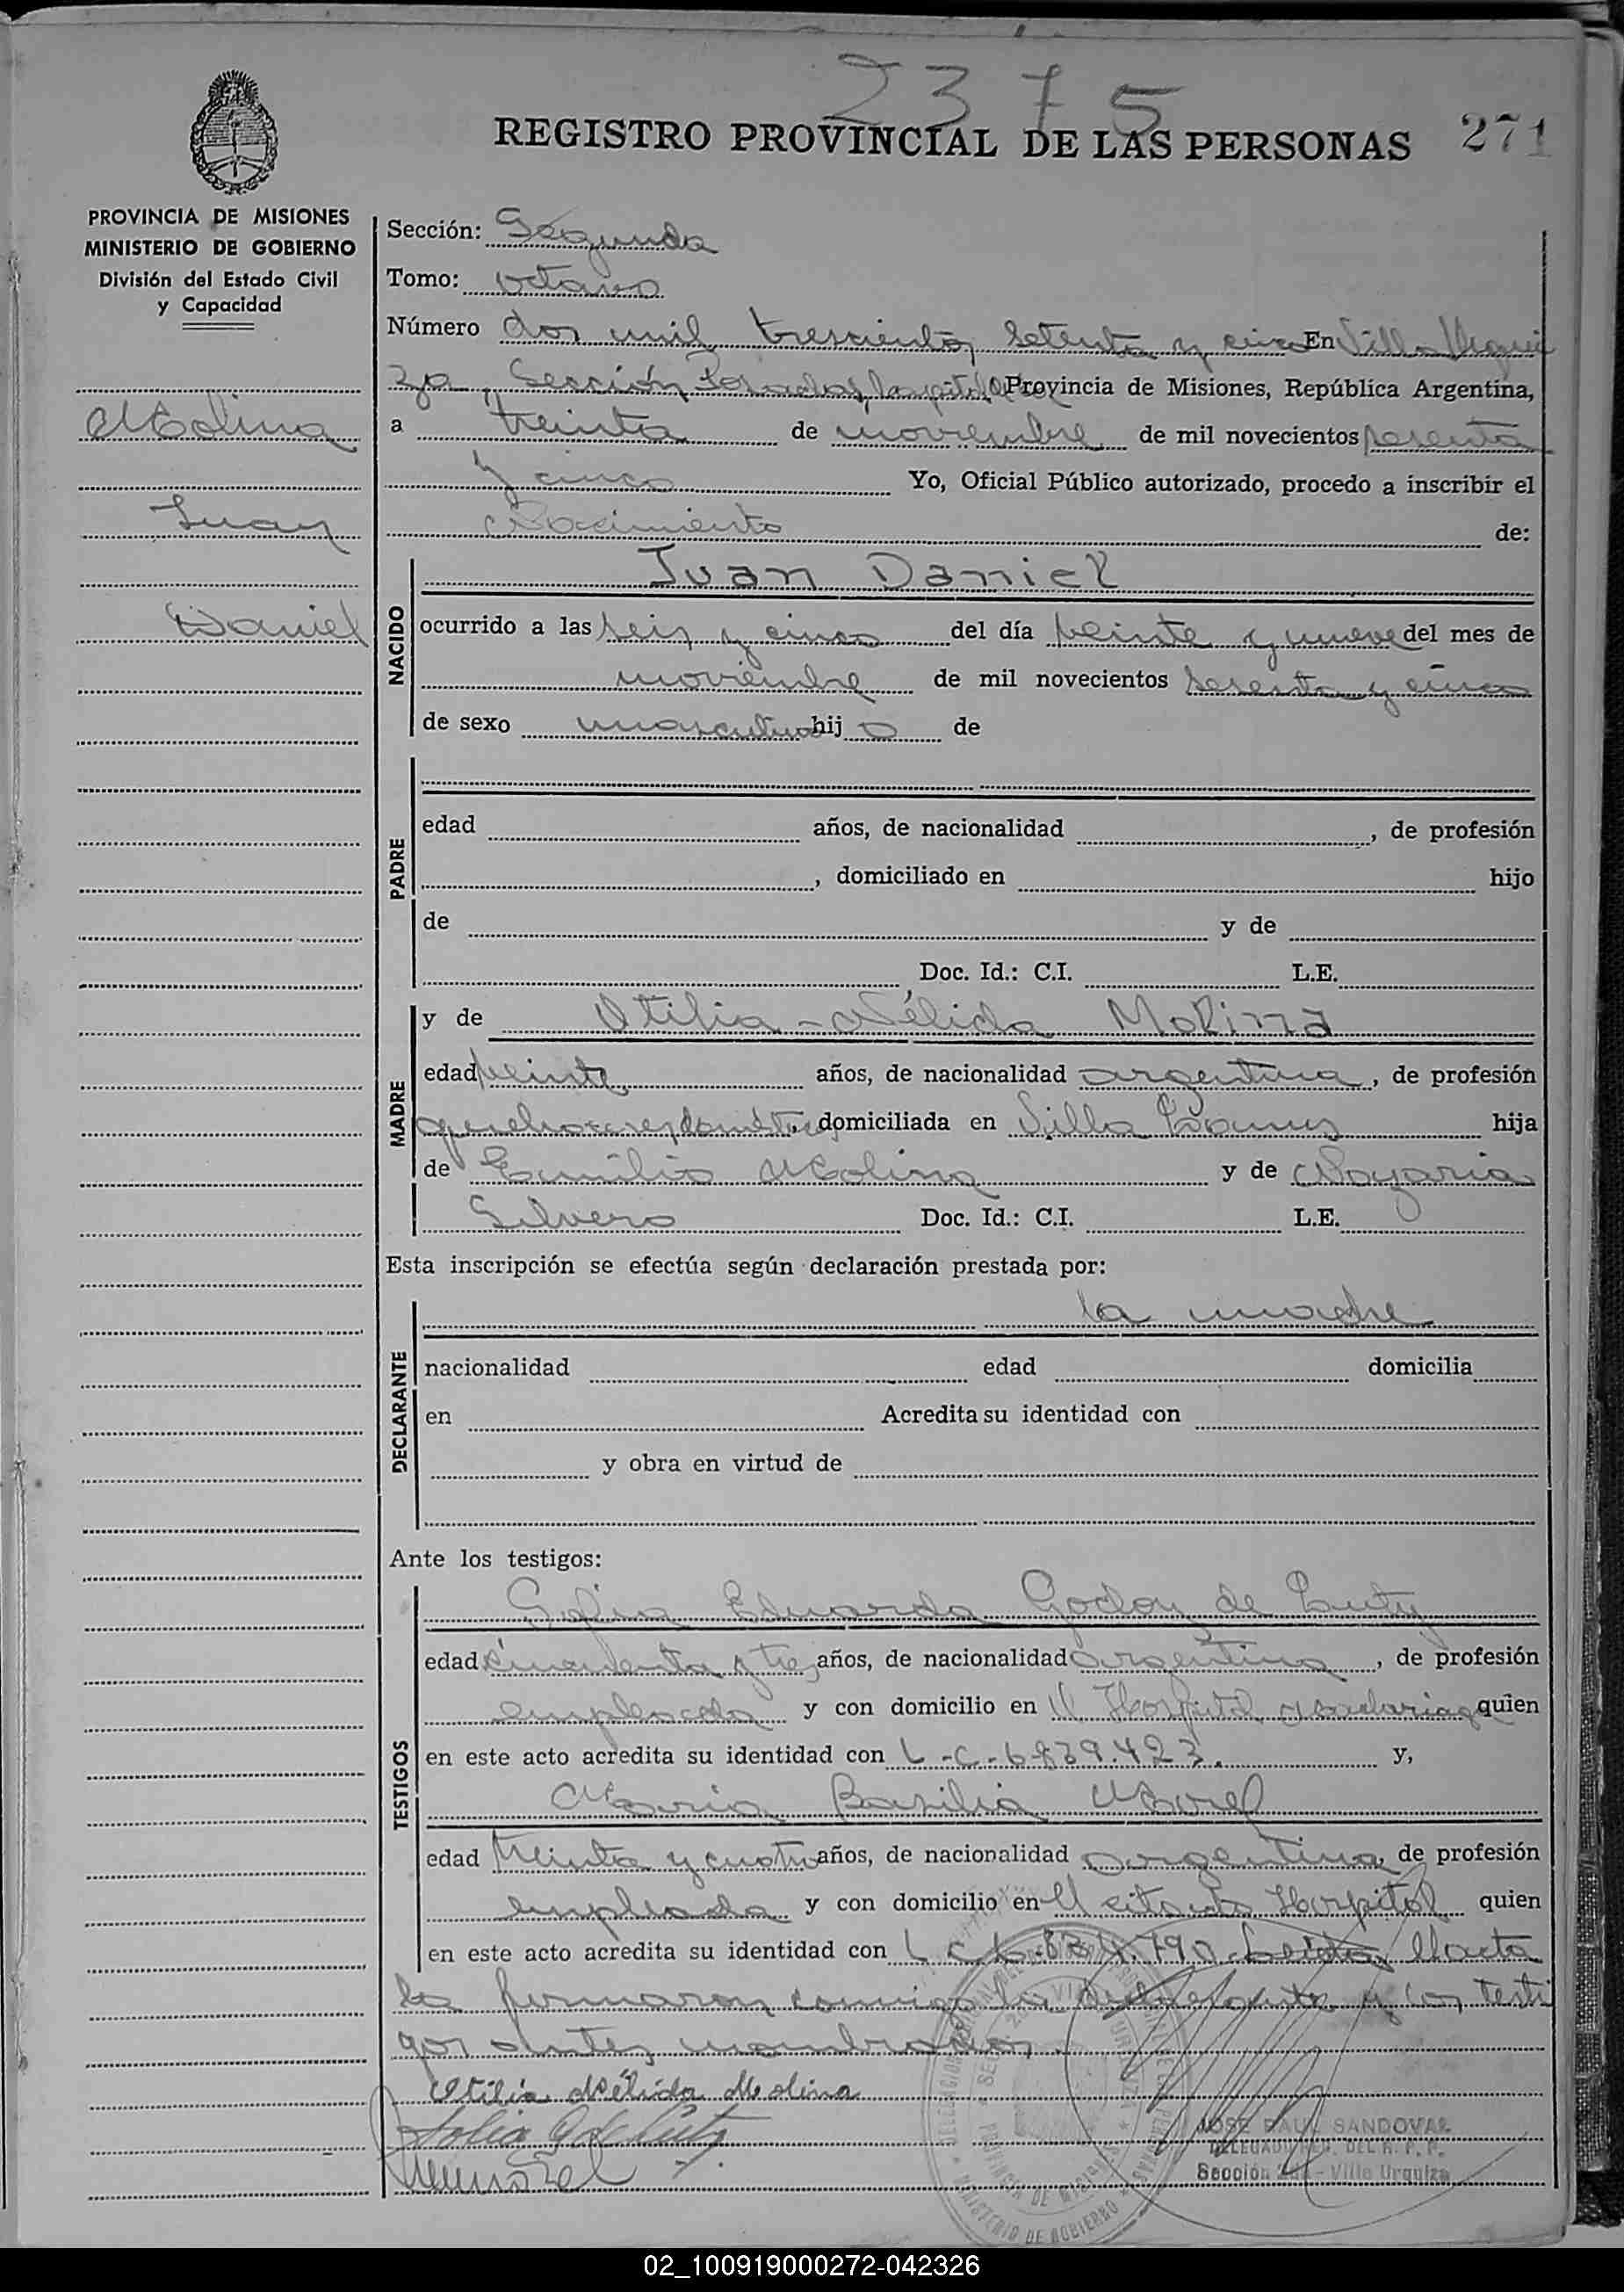 2375
REGISTRO PROVINCIAL DE LAS PERSONAS 271
PROVINCIA DE MISIONES
MINISTERIO DE GOBIERNO
División del Estado Civil
y Capacidad
Molina
Juan
Daniel
Sección: Segunda
Tomo: octavo
Número dos mil trescientos setenta y cinco En Villa Urqui
za, Sección Posadas, hospital Provincia de Misiones, República Argentina,
a treinta de noviembre de mil novecientos sesenta
y cinco Yo, Oficial Público autorizado, procedo a inscribir el
Nacimiento de:
NACIDO
Juan Daniel
ocurrido a las seis y cinco del día veinte y nueve del mes de
noviembre de mil novecientos sesenta y cinco
de sexo masculino hij o de
PADRE
edad años, de nacionalidad , de profesión
, domiciliado en hijo
de y de
Doc. Id.: C.I. L.E.
MADRE
y de Otilia - Nélida Molina
edad veinte años, de nacionalidad argentina, de profesión
quehaceres domésticos, domiciliada en Villa Lanus hija
de Emilio Molina y de Nazaria
Silvero Doc. Id.: C.I. L.E.
Esta inscripción se efectúa según declaración prestada por:
DECLARANTE
la madre
nacionalidad edad domicilia
en Acredita su identidad con
y obra en virtud de
Ante los testigos:
TESTIGOS
Sofia Eduarda Godoy de Luty
edad cincuenta y tres años, de nacionalidad argentina, de profesión
empleada y con domicilio en el Hospital Madariaga quien
en este acto acredita su identidad con L.C. 6839.423. y,
Maria Basilia Morel
edad treinta y cuatro años, de nacionalidad argentina, de profesión
empleada y con domicilio en el citado Hospital quien
en este acto acredita su identidad con L.C. Leida el acta
la firmaron conmigo la declarante y los testi
gos antes nombrados.
Otilia Nélida Molina
JOSE RAUL SANDOVAL
DELEGADO DEL R. P. P.
Sección - Villa Urquiza
02_100919000272-042326